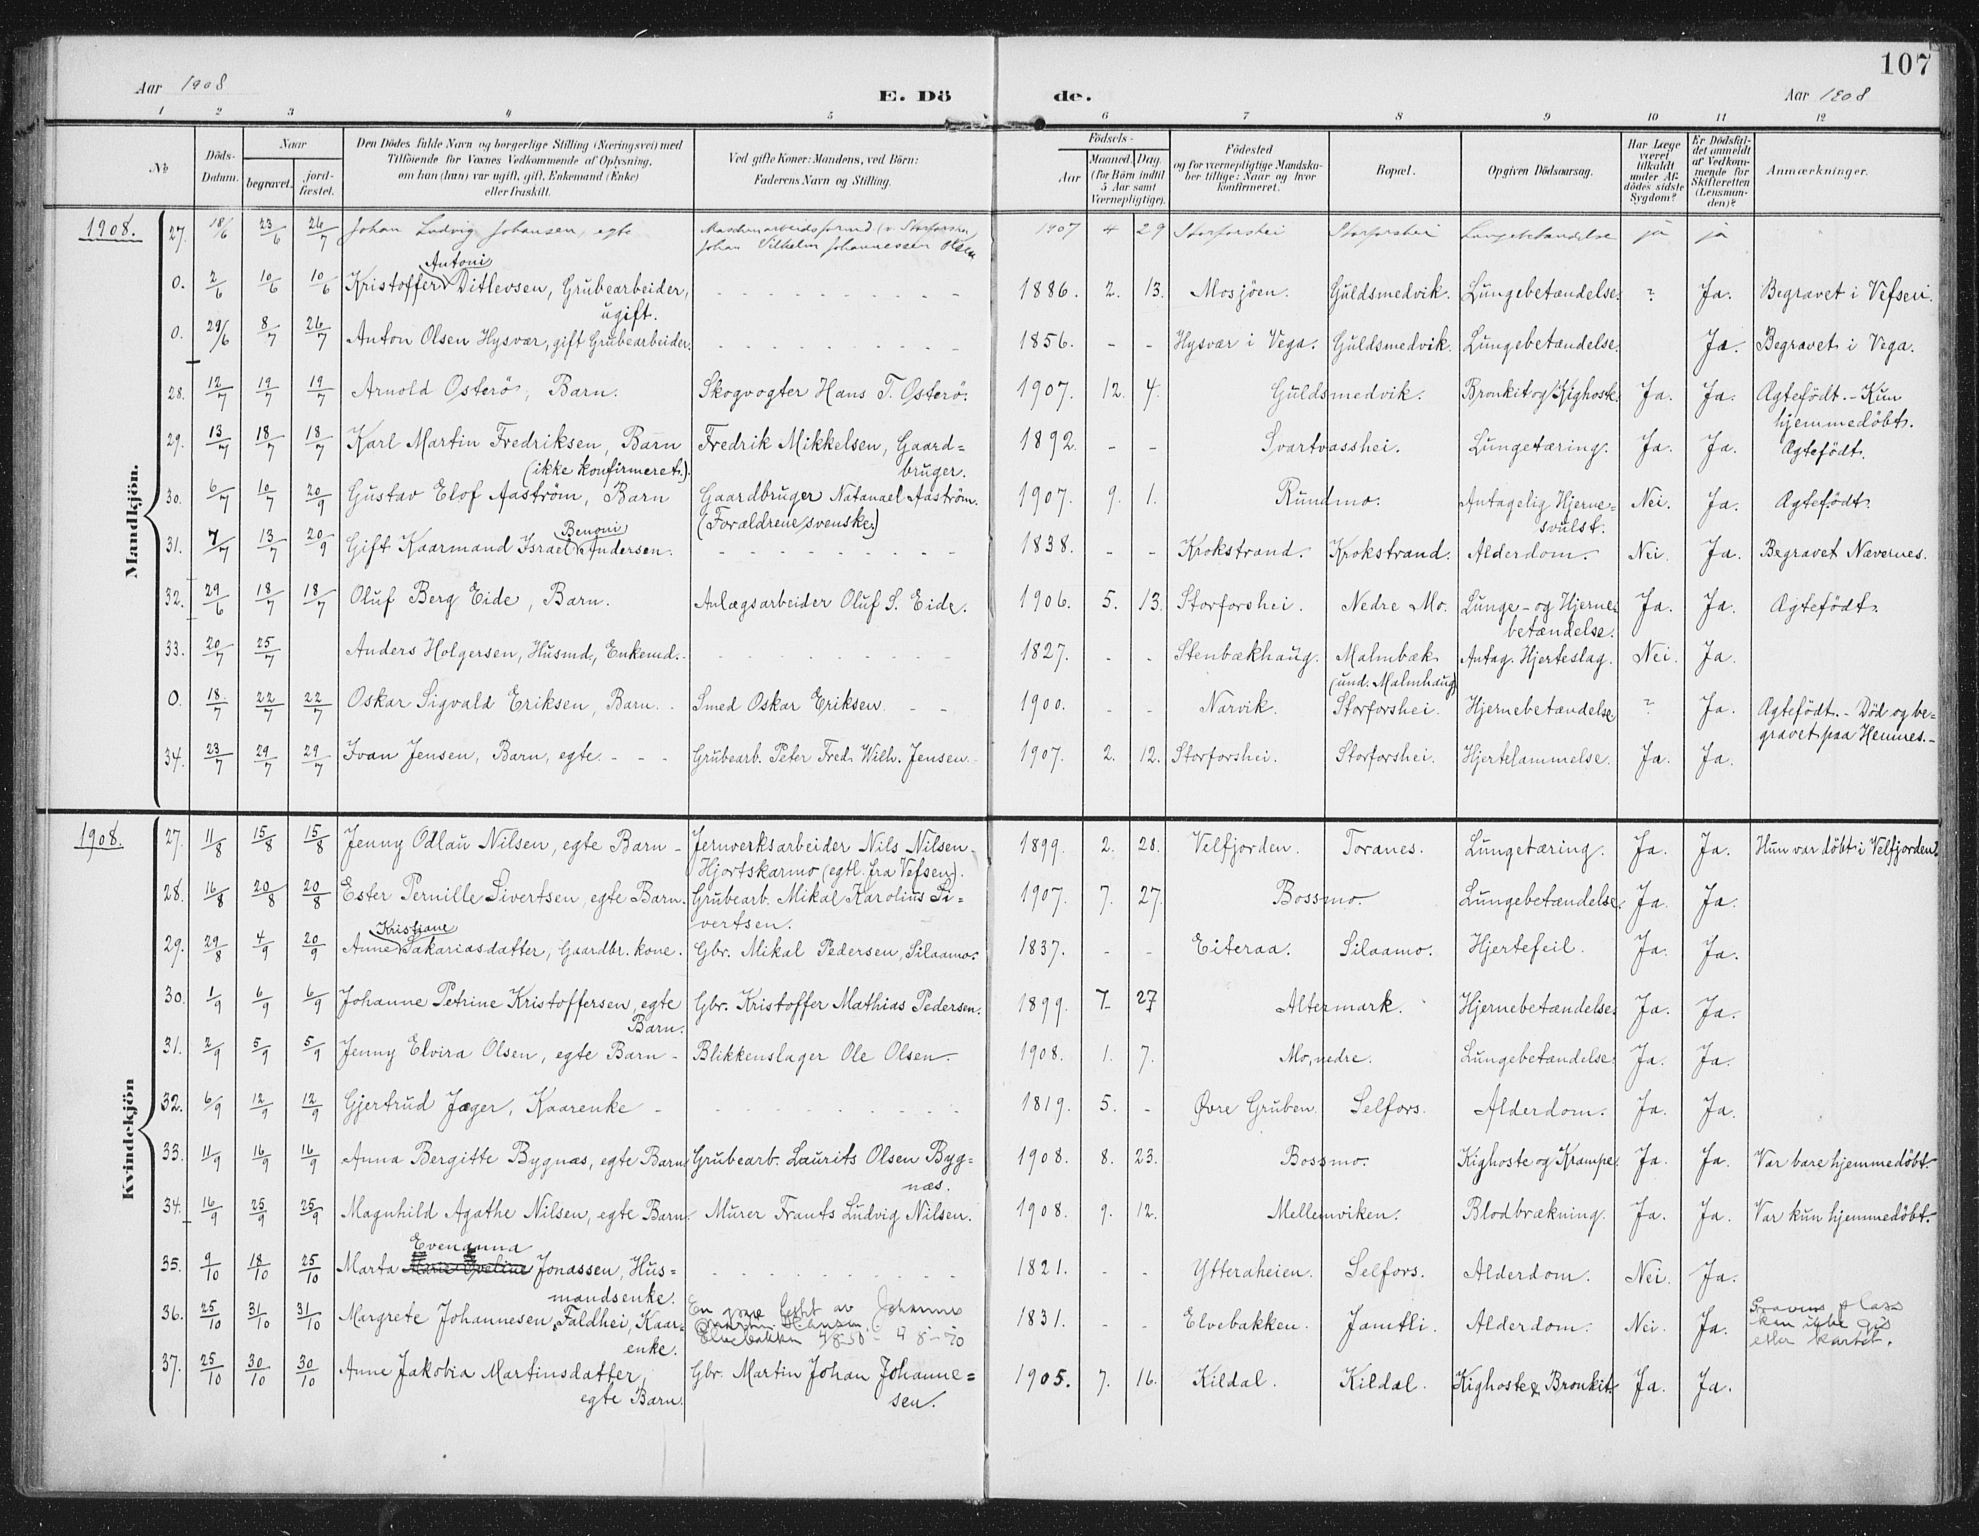 107
Aar 1908 E. Dö de. Aar 1908
1 2 3 4 5 6 7 8 9 10 11 12
No Döds-Datum. Naar begravet. jordfæstet. Den Dödes fulde Navn og borgerlige Stilling (Næringsvei) med Tilföiende for Voxnes Vedkommende af Oplysning, om han (hun) var ugift, gift, Enkemand (Enke) eller fraskilt. Ved gifte Koner: Mandens, ved Börn: Faderens Navn og Stilling. Födsels- Aar Maaned. Dag. (for Börn indtil 5 Aar samt Værnepligtige). Födested og for værnepligtige Mandskaber tillige: Naar og hvor konfirmeret. Bopæl. Opgiven Dödsaarsag. Har Læge været tilkaldt under Afdödes sidste Sygdom? Er Dödsfaldet anmeldt af Vedkommende for Skifteretten (Lensmanden)? Anmærkninger.
Mandkjön.
1908. 27. 18/6 23/6 26/7 Johan Ludvig Johansen, egte Maskinarbeidsformd (v. Storforshei) 1907 4 29 Storforshei Storforshei Lungebetændelse ja ja
Johan Vilhelm Johannessen Olsen
Antoni
0. 2/6 10/6 10/6 Kristoffer Ditlevsen, Grubearbeider, 1886. 2. 13. Mosjöen. Guldsmedvik. Lungebetændelse. ? Ja. Begravet i Vefsen.
ugift.
0. 29/6 8/7 26/7 Anton Olsen Hysvær, gift Grubearbeider. 1856. - - Hysvær i Vega. Guldsmedvik. Lungebetændelse. Ja. Begravet i Vega.
28. 12/7 19/7 19/7 Arnold Osterö, Barn. Skogvogter Hans T. Osterö. 1907. 12. 4. Guldsmedvik. Bronkit og Kighoste. Ja. Ja. Ægtefödt. - Kun
hjemmedöbt.
29. 13/7 18/7 18/7 Karl Martin Fredriksen, Barn Fredrik Mikkelsen, Gaard- 1892. - - Svartvasshei. Lungetæring. Ja. Ja. Ægtefödt.
(ikke konfirmeret.) bruger.
30. 6/7 10/7 20/9 Gustav Elof Aaström, Barn Gaardbruger Natanael Aaström. 1907. 9. 1. Rundmo. Antagelig Hjerne- Nei. Ja. Ægtefödt.
(Forældrene svenske.) svulst.
Benoni
31. 7/7 13/7 20/9 Gift Kaarmand Israel Andersen. 1838. - - Krokstrand. Krokstrand. Alderdom. Nei. Ja. Begravet Nævernes.
32. 29/6 18/7 18/7 Oluf Berg Eide, Barn. Anlægsarbeider Oluf S. Eide. 1906. 5. 13. Storforshei. Nedre Mo. Lunge- og Hjerne- Ja. Ja. Ægtefödt.
betændelse.
33. 20/7 25/7 Anders Holgersen, Husmd., Enkemd. 1827. - - Stenbækhaug. Malmbæk Antag. Hjerteslag. Nei. Ja.
(und. Malmhaug)
0. 18/7 22/7 22/7 Oskar Sigvald Eriksen, Barn. Smed Oskar Eriksen. 1900. - - Narvik. Storforshei. Hjernebetændelse ? Ja. Ægtefödt. - Död og be-
gravet paa Hemnes. -
34. 23/7 29/7 29/7 Ivan Jensen, Barn, egte. Grubearb. Peter Fred. Wilh. Jensen. 1907. 2. 12. Storforshei. Storforshei. Hjertelammelse. Ja. Ja.
Kvindekjön
1908. 27. 11/8 15/8 15/8 Jenny Odlau Nilsen, egte Barn - Jernverksarbeider Nils Nilsen 1899. 2. 28. Velfjorden. Toranes. Lungetæring. Ja. Ja. Hun var döbt i Velfjorden.
Hjortskarmo (egtl. fra Vefsen).
28. 16/8 20/8 20/8 Ester Pernille Sivertsen, egte Barn. Grubearb. Mikal Karolius Si- 1907. 7. 27. Bossmo. Lungebetændelse. Ja. Ja.
vertsen.
Kristiane
29. 29/8 4/9 20/9 Anne Sakariasdatter, Gaardbr. kone. Gbr. Mikal Pedersen, Silaamo. 1837. - - Eiteraa. Silaamo. Hjertefeil. Ja. Ja.
30. 1/9 6/9 6/9 Johanne Petrine Kristoffersen, egte Gbr. Kristoffer Mathias Pedersen. 1899. 7. 27 Altermark. Hjernebetændelse. Ja. Ja.
Barn.
31. 2/9 5/9 5/9 Jenny Elvira Olsen, egte Barn - Blikkenslager Ole Olsen. 1908. 1. 7. Mo, nedre. Lungebetændelse. Ja. Ja.
32. 6/9 12/9 12/9 Gjertrud Jæger, Kaarenke 1819. 5. - Øvre Gruben. Selfors. Alderdom. Ja. Ja.
33. 11/9 16/9 16/9 Anna Bergitte Bygnæs, egte Barn Grubearb. Laurits Olsen Byg- 1908. 8. 23. Bossmo. Kighoste og Krampe. Ja. Ja. Var bare hjemmedöbt.
næs.
34. 16/9 25/9 25/9 Magnhild Agathe Nilsen, egte Barn. Murer Frants Ludvig Nilsen. 1908. 9. 12. Mellemviken. Blodbrækning. Ja. Ja. Var kun hjemmedöbt.
Evenanna
35. 9/10 18/10 25/10 Marta Jonassen, Hus- 1821. - - Ytteraheien. Selfors. Alderdom. Nei. Ja.
mandsenke.
36. 25/10 31/10 31/10 Margrete Johannesen, Faldhei, Kaar- En grav festet av Johannes 1831. - - Elvebakken. Jamtli. Alderdom. Nei. Ja. Gravens plass
enke. Hansen, kan ikke gis
Elvebakken efter kartet.
37. 25/10 30/10 30/10 Anne Jakobia Martinsdatter, Gbr. Martin Johan Johanne- 1905. 7. 16. Kildal. Kildal. Kighoste & Bronkit. Ja. Ja.
egte Barn. sen.